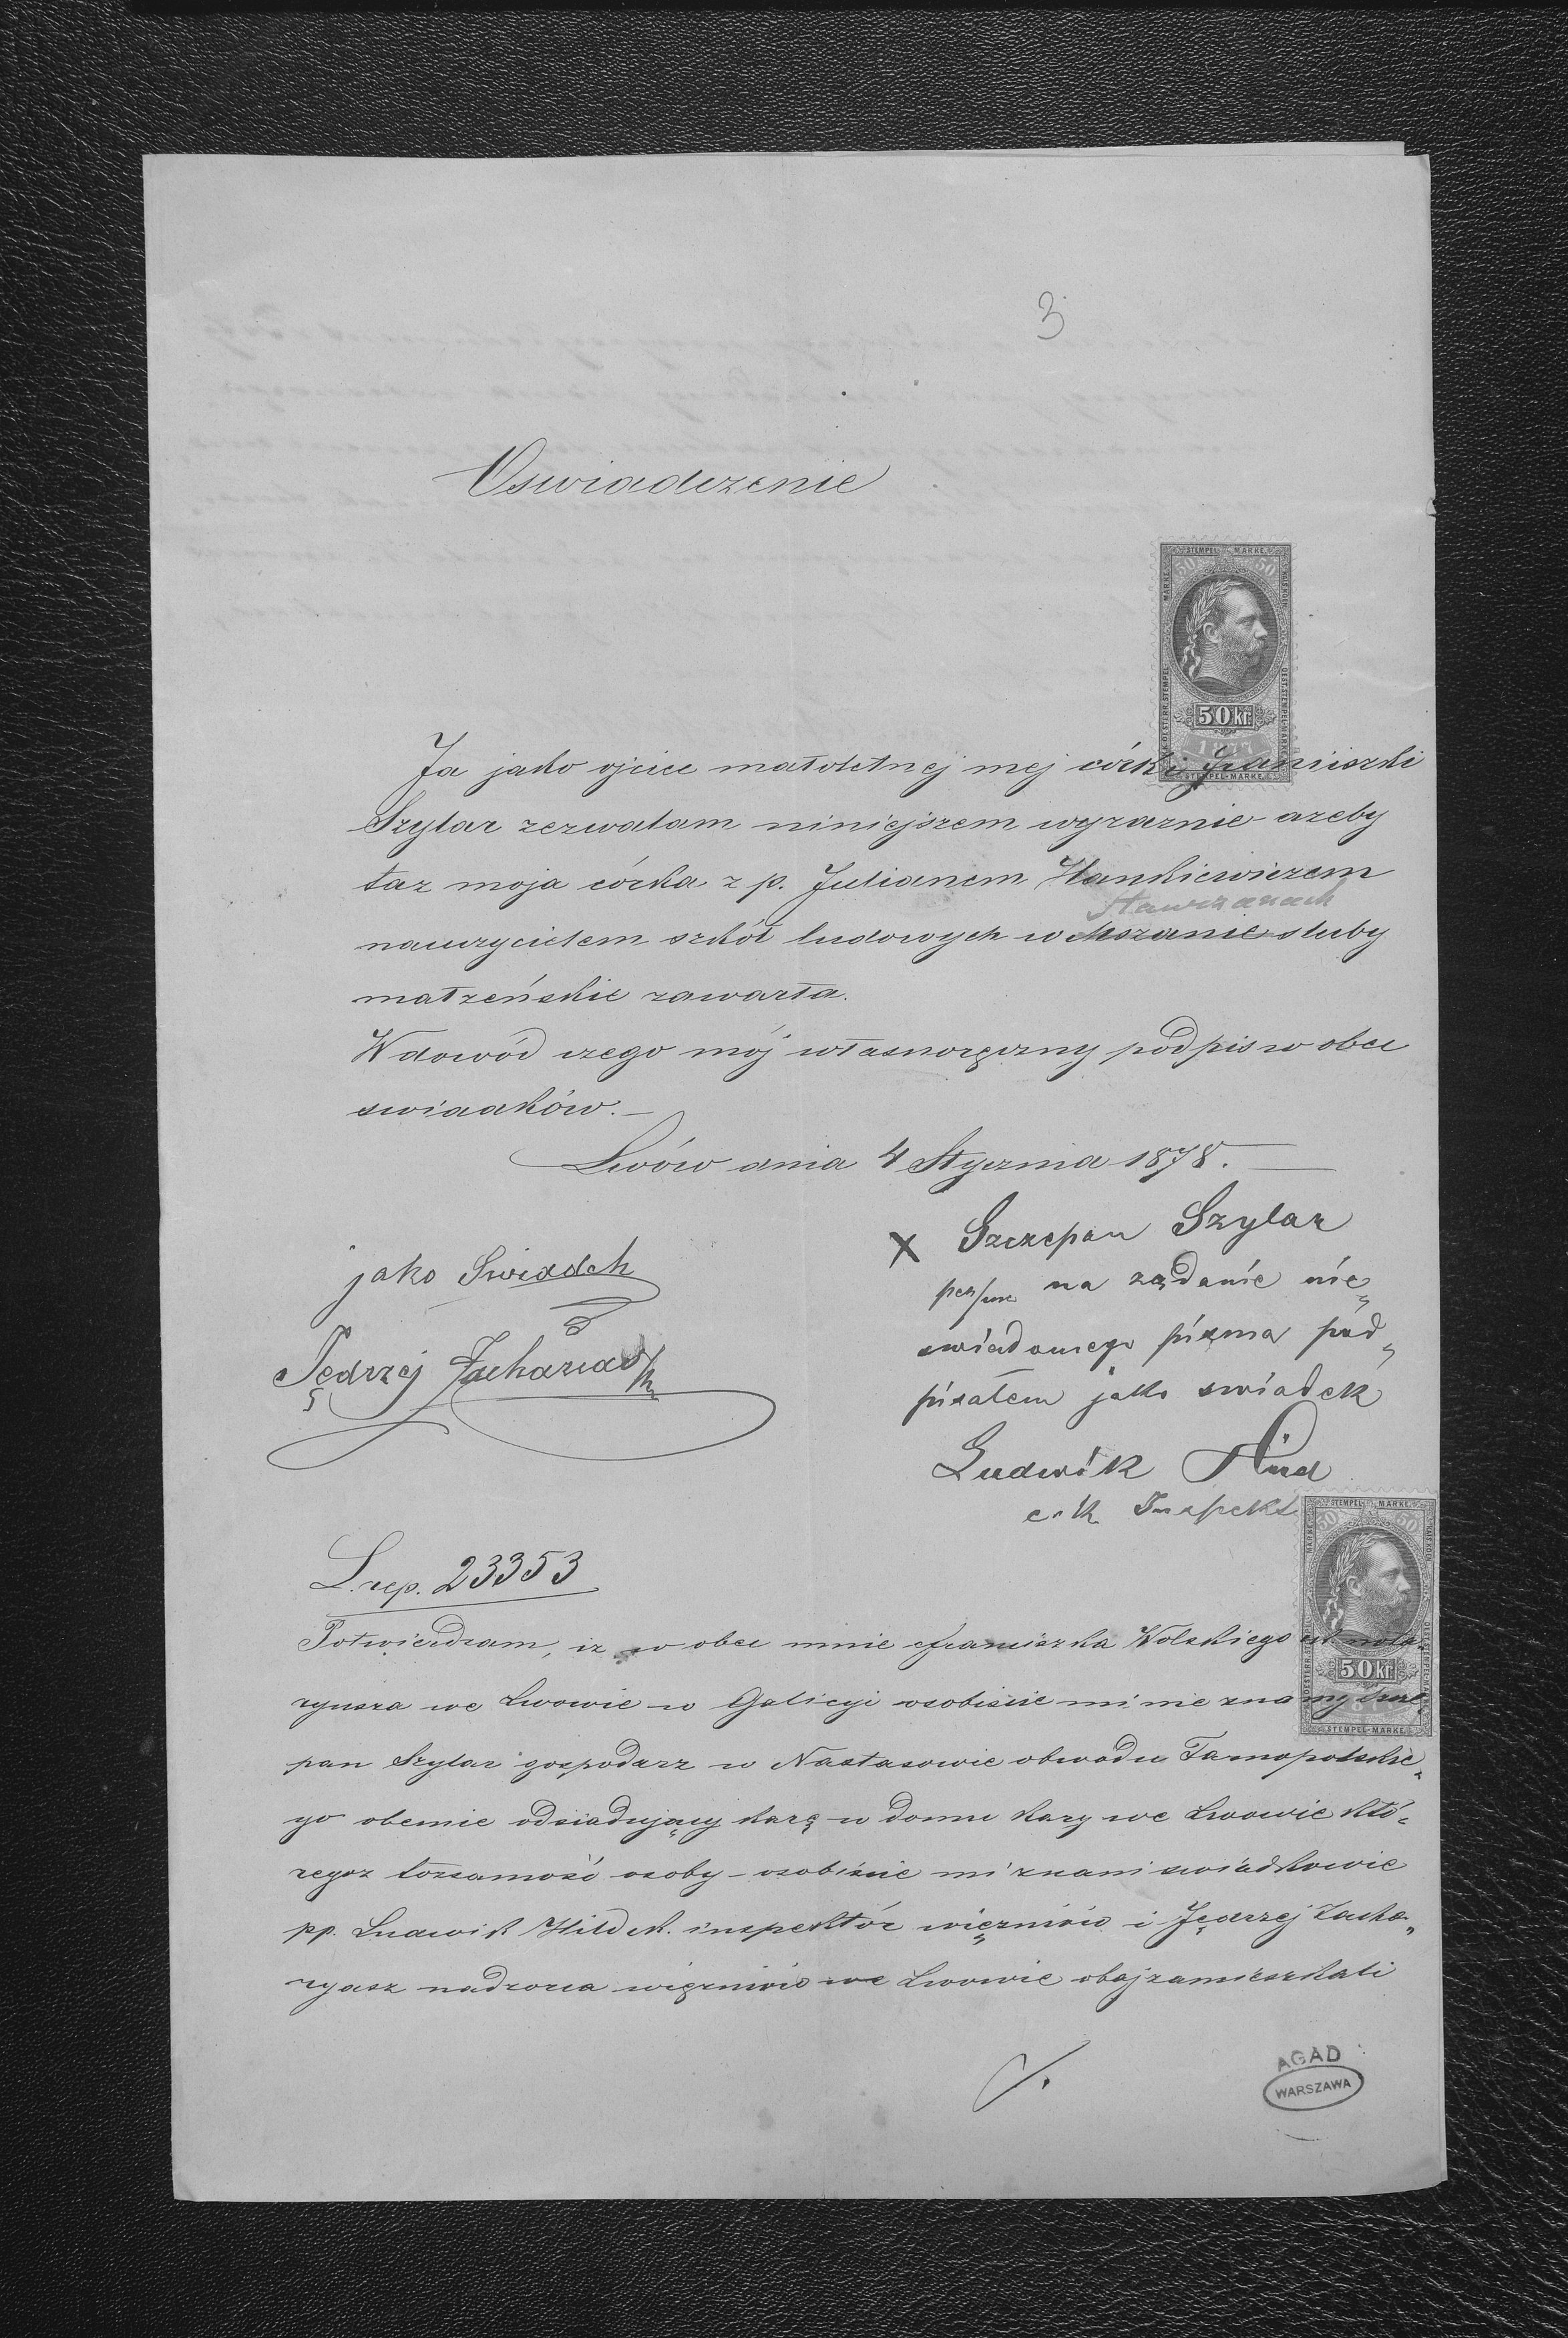 3
Oswiadczenie
STEMPEL MARKE
50 50
50 kr.
1877
STEMPEL-MARKE
Ja jako ojciec małoletnej mej córki Franciszki
Szylar zezwalam niniejszem wyraznie azeby
taz moja córka z p. Julianem Hankiewiczem
Stawczanach
nauczycielem szkół ludowych w Mszanie sluby
małzeńskie zawarła.
W dowód czego mój własnoręczny podpis w obec
swiadków.—
Lwów dnia 4 Stycznia 1878.
X Szczepan Szylar
na ządanie nie„
swiadomego pisma pod„
pisałem jako swiadek
Ludwik
c. k. Inspekt
jako Swiadek
Jędrzej Zacharias
L. rep. 23353
STEMPEL MARKE
50 50
50 kr.
STEMPEL-MARKE
Potwierdzam, iz w obec mnie Franciszka Wolskiego ck nota„
ryusza we Lwowie w Galicyi osobiscie mi nie znany Szcze„
pan Szylar gospodarz w Nastasowie obwodu Tarnopolskie„
go obecnie odsiadujący karę w domu kary we Lwowie któ„
regoz tozsamość osoby – osobiscie mi znani swiadkowie
pp. Ludwik Hild ck. inspektór więzniów i Jędrzej Zacha„
ryasz nadzorca więzniów we Lwowie obaj zamieszkali
./.
AGAD
WARSZAWA